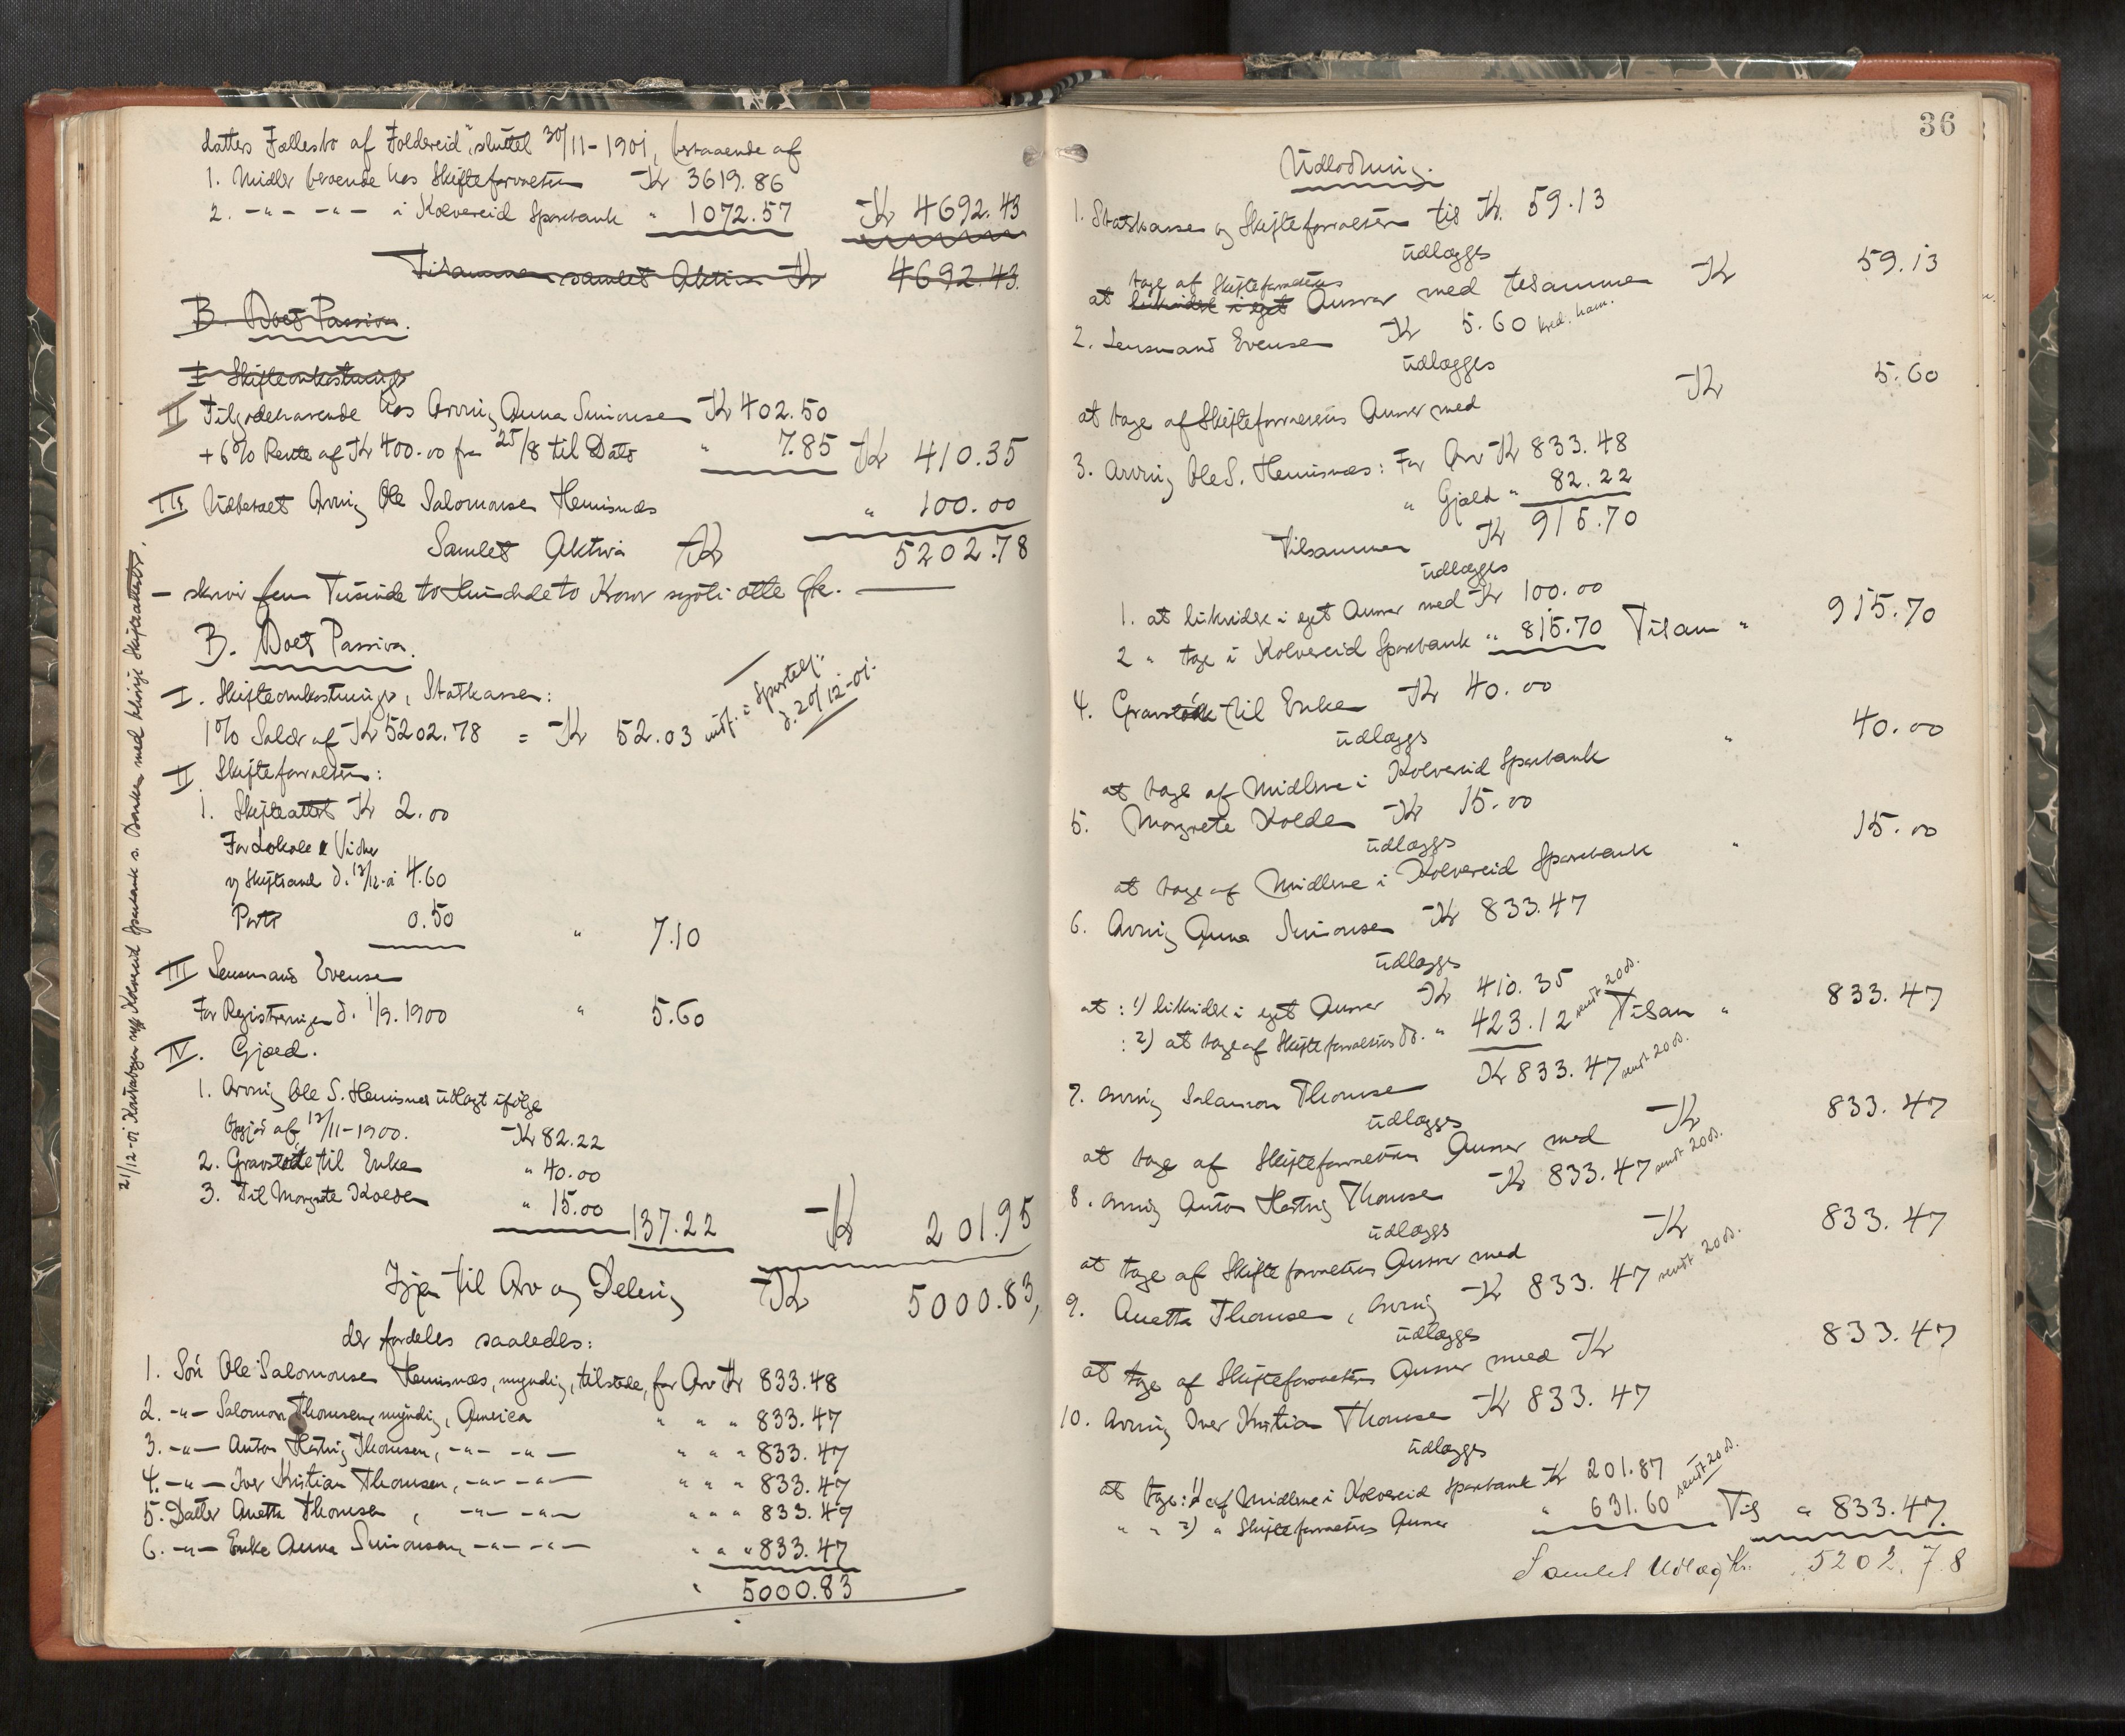 datters Fællesbo af Foldereid", sluttet 30/11-1901, bestaaende af
1. Midler beroende hos Skifteforvalteren Kr 3619.86
2. -"- -"- i Kolvereid Sparebank " 1072.57 Kr 4692.43
Tilsammen samlet Aktiva Kr 4692.43.
B. Boets Passiva.
I Skifteomkostninger
II Tilgodehavende hos Arving Anna Simonsen Kr 402.50
+ 6% Rente af Kr 400.00 fra 25/8 til Dato " 7.85 Kr 410.35
III. Udbetalt Arving Ole Salomonsen Hemisnæs " 100.00
Samlet Aktiva Kr 5202.78
– skriver fem Tusinde to Hundrede to Kroner sytti otte Øre. –
B. Boets Passiva.
I. Skifteomkostninger, Statskassen:
1% Salær af Kr 5202.78 = Kr 52.03 indf. i Sportelj.
d. 20/12-01.
II Skifteforvalteren:
1. Skifteattest Kr 2.00
For Lokale & Vidner
og Skiftesaml d. 12/12-01 4.60
Porto 0.50 " 7.10
III Lensmand Evensen
For Registreringen d. 1/9.1900 " 5.60
IV. Gjæld.
1. Arving Ole S. Hemisnæs udlagt ifølge
Opgjør af 12/11-1900. Kr 82.22
2. Gravstøtte til Enken " 40.00
3. Til Margrete Kolden " 15.00 137.22 Kr 201.95
Igjen til Arv og Deling Kr 5000.83,
der fordeles saaledes:
1. Søn Ole Salomonsen Hemisnæs, myndig, tilstede, for Arv Kr 833.48
2. -"- Salomon Thomsen, myndig, America " " " 833.47
3. -"- Anton Hartvig Thomsen, -"- -"- " " " 833.47
4. -"- Iver Kristian Thomsen, -"- -"- " " " 833.47
5. Datter Anetta Thomsen, -"- -"- " " " 833.47
6. -"- Enke Anna Simonsen, -"- -"- " " " 833.47
" 5000.83
21/12-01 Kontrabogen Kolvereid Sparebank s. Banken med Skifteattest.
36
Udlodning.
1. Statskassen og Skifteforvalteren til Kr. 59.13
udlægges
tage af Skifteforvalterens
at likvidere i eget Ansvar med tilsammen Kr 59.13
2. Lensmand Evensen Kr 5.60 kred. ham.
udlægges
at tage af Skifteforvalterens Ansvar med Kr 5.60
3. Arving Ole S. Hemisnæs: For Arv Kr 833.48
" Gjæld " 82.22
Tilsammen Kr 915.70
udlægges
1. at likvidere i eget Ansvar med Kr 100.00
2 " tage i Kolvereid Sparebank " 815.70 Tilsam " 915.70
4. Gravstøtte til Enken Kr 40.00
udlægges
at tage af Midlerne i Kolvereid Sparebank " 40.00
5. Margrete Kolden Kr 15.00
udlægges
at tage af Midlerne i Kolvereid Sparebank " 15.00
6. Arving Anna Simonsen Kr 833.47
udlægges
at: 1) likvidere i eget Ansvar Kr 410.35
: 2) at tage af Skifteforvalterens Do. " 423.12 sendt 20 ds. Tilsam " 833.47
7. Arving Salamon Thomsen Kr 833.47 sendt 20 ds.
udlægges
at tage af Skifteforvalterens Ansvar med Kr 833.47
8. Arving Anton Hartvig Thomsen Kr 833.47 sendt 20 ds.
udlægges
at tage af Skifteforvalterens Ansvar med Kr 833.47
9. Anetta Thomsen, Arving Kr 833.47 sendt 20 ds.
udlægges
at tage af Skifteforvalterens Ansvar med Kr 833.47
10. Arving Iver Kristian Thomsen Kr 833.47
udlægges
at tage: 1) af Midlerne i Kolvereid Sparebank Kr 201.87
" " 2) " Skifteforvalterens Ansvar " 631.60 sendt 20 ds. Tils " 833.47.
Samlet Udlæg Kr. 5202.78